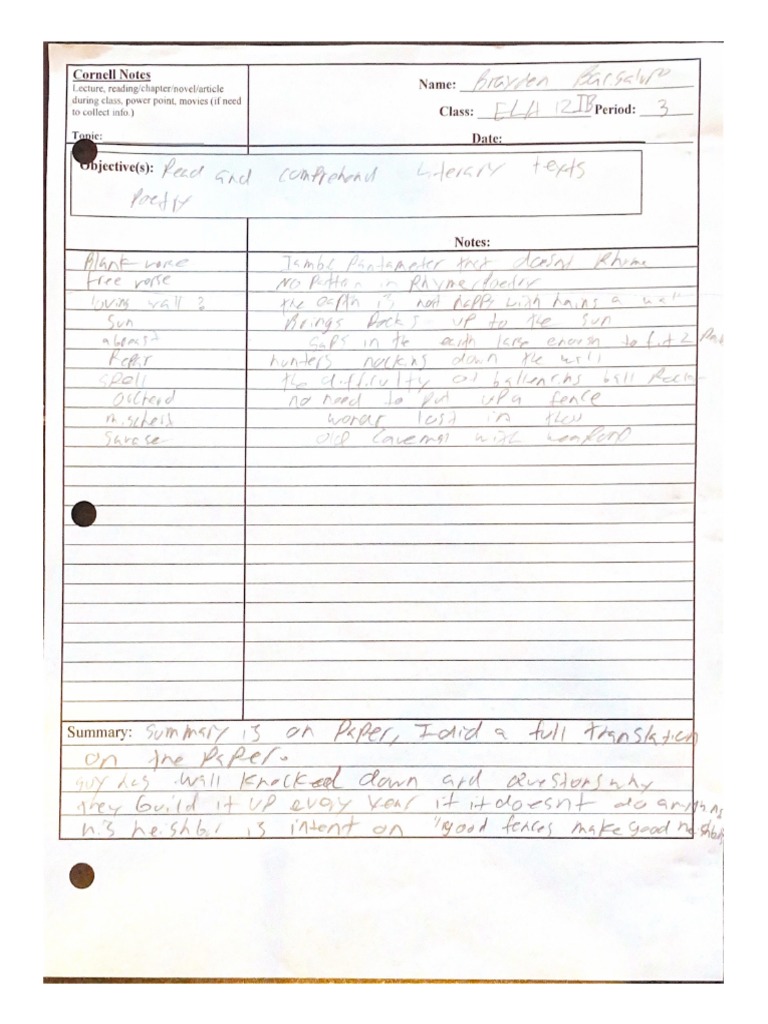 Cornell Notes
Lecture, reading/chapter/novel/article
during class, power point, movies (if need
to collect info.)
Topic:
Name: Brayden
Class: ELA 12 IB Period: 3
Date:
Objective(s): Read and comprehend literary texts
Poetry
Notes:
Blank verse Iambc Pantameter that doesnt Rhyme
free verse No Pattan in Rhymer Poetry
loving wall? the earth is not happy with haing a wall
Sun Brings Rocks up to the sun
Gaps in the earth large enough to fit 2
Repair hunters nocking down the wall
spell the difficulty of ball
no need to put up a fence
words lost in
old cavemas with
Summary: Summary is on Paper, I did a full translation
on the Paper.
guy has wall knocked down and questons why
they build it up evay year if it doesnt do anything
his neighbr is intent on "good fences make good neighbors